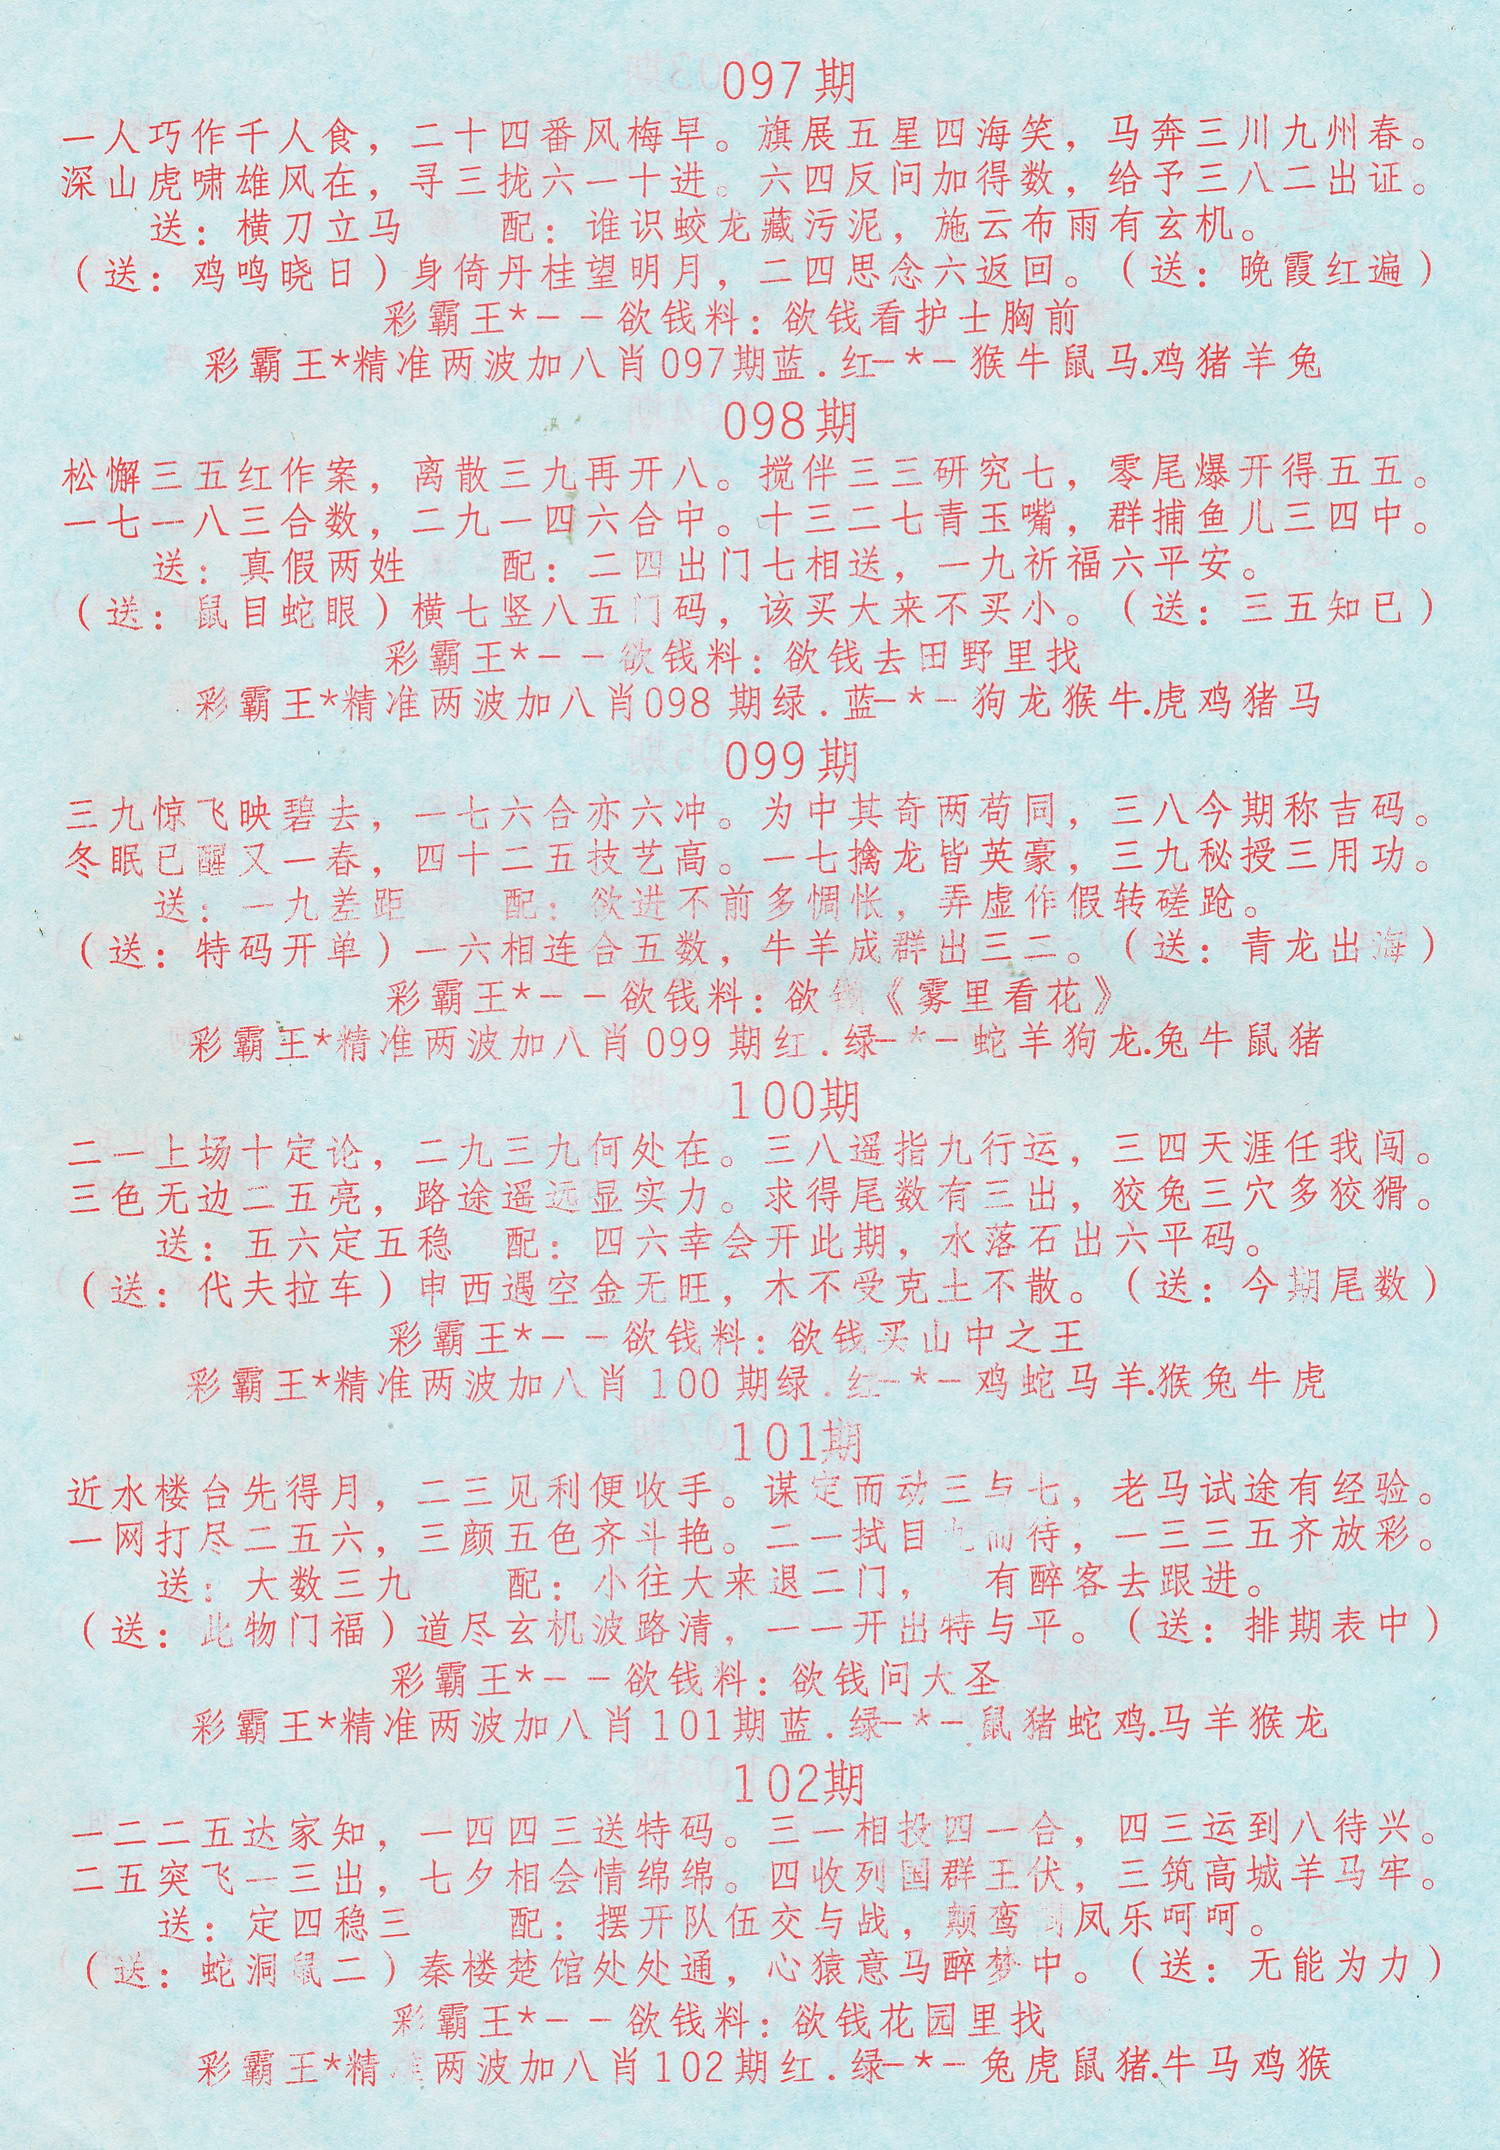 097期
一人巧作千人食，二十四番风梅早。旗展五星四海笑，马奔三川九州春。
深山虎啸雄风在，寻三拢六一十进。六四反问加得数，给予三八二出证。
送：横刀立马 配：谁识蛟龙藏污泥，施云布雨有玄机。
（送：鸡鸣晓日）身倚丹桂望明月，二四思念六返回。（送：晚霞红遍）
彩霸王*--欲钱料：欲钱看护士胸前
彩霸王*精准两波加八肖097期蓝.红-*-猴牛鼠马.鸡猪羊兔
098期
松懈三五红作案，离散三九再开八。搅伴三三研究七，零尾爆开得五五。
一七一八三合数，二九一四六合中。十三二七青玉嘴，群捕鱼儿三四中。
送：真假两姓 配：二四出门七相送，一九祈福六平安。
（送：鼠目蛇眼）横七竖八五门码，该买大来不买小。（送：三五知已）
彩霸王*--欲钱料：欲钱去田野里找
彩霸王*精准两波加八肖098期绿.蓝-*-狗龙猴牛.虎鸡猪马
099期
三九惊飞映碧去，一七六合亦六冲。为中其奇两苟同，三八今期称吉码。
冬眠已醒又一春，四十二五技艺高。一七擒龙皆英豪，三九秘授三用功。
送：一九差距 配：欲进不前多惆怅，弄虚作假转磋跄。
（送：特码开单）一六相连合五数，牛羊成群出三二。（送：青龙出海）
彩霸王*--欲钱料：欲钱《雾里看花》
彩霸王*精准两波加八肖099期红.绿-*-蛇羊狗龙.兔牛鼠猪
100期
二一上场十定论，二九三九何处在。三八遥指九行运，三四天涯任我闯。
三色无边二五亮，路途遥远显实力。求得尾数有三出，狡兔三穴多狡猾。
送：五六定五稳 配：四六幸会开此期，水落石出六平码。
（送：代夫拉车）申西遇空金无旺，木不受克土不散。（送：今期尾数）
彩霸王*--欲钱料：欲钱买山中之王
彩霸王*精准两波加八肖100期绿.红-*-鸡蛇马羊.猴兔牛虎
101期
近水楼台先得月，二三见利便收手。谋定而动三与七，老马试途有经验。
一网打尽二五六，三颜五色齐斗艳。二一拭目九而待，一三三五齐放彩。
送：大数三九 配：小往大来退二门， 有醉客去跟进。
（送：此物门福）道尽玄机波路清，一一开出特与平。（送：排期表中）
彩霸王*--欲钱料：欲钱问大圣
彩霸王*精准两波加八肖101期蓝.绿-*-鼠猪蛇鸡.马羊猴龙
102期
一二二五达家知，一四四三送特码。三一相投四一合，四三运到八待兴。
二五突飞一三出，七夕相会情绵绵。四收列国群王伏，三筑高城羊马牢。
送：定四稳三 配：摆开队伍交与战，颠鸾 凤乐呵呵。
（送：蛇洞鼠二）秦楼楚馆处处通，心猿意马醉梦中。（送：无能为力）
彩霸王*--欲钱料：欲钱花园里找
彩霸王*精准两波加八肖102期红.绿-*-兔虎鼠猪.牛马鸡猴